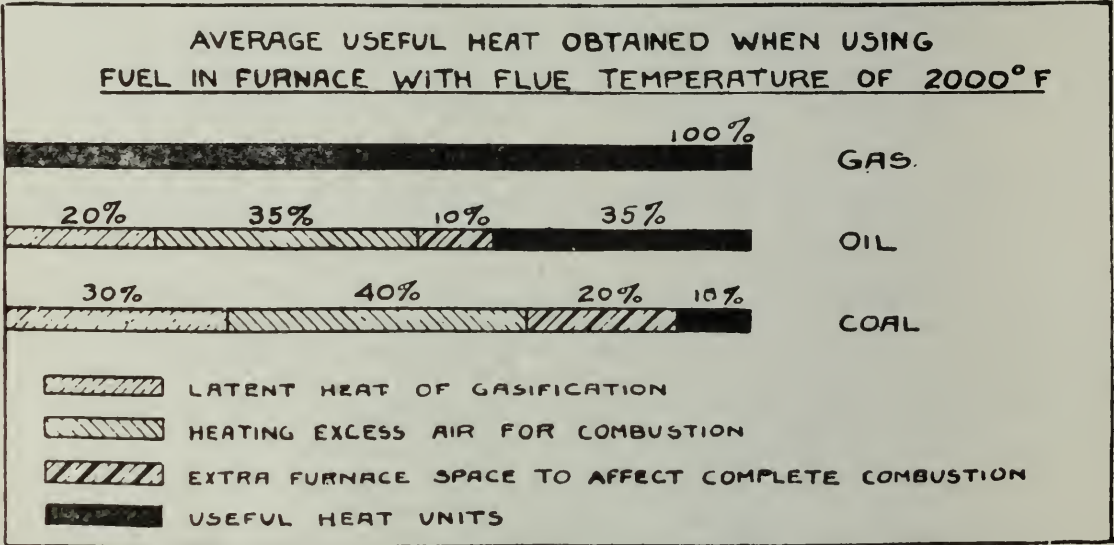 AVERAGE USEFUL HEAT OBTAINED WHEN USING
FUEL IN FURNACE WITH FLUE TEMPERATURE OF 2000°F
100%
GAS.
20% 35% 10% 35%
OIL
30% 40% 20% 10%
COAL
LATENT HEAT OF GASIFICATION
HEATING EXCESS AIR FOR COMBUSTION
EXTRA FURNACE SPACE TO AFFECT COMPLETE COMBUSTION
USEFUL HEAT UNITS